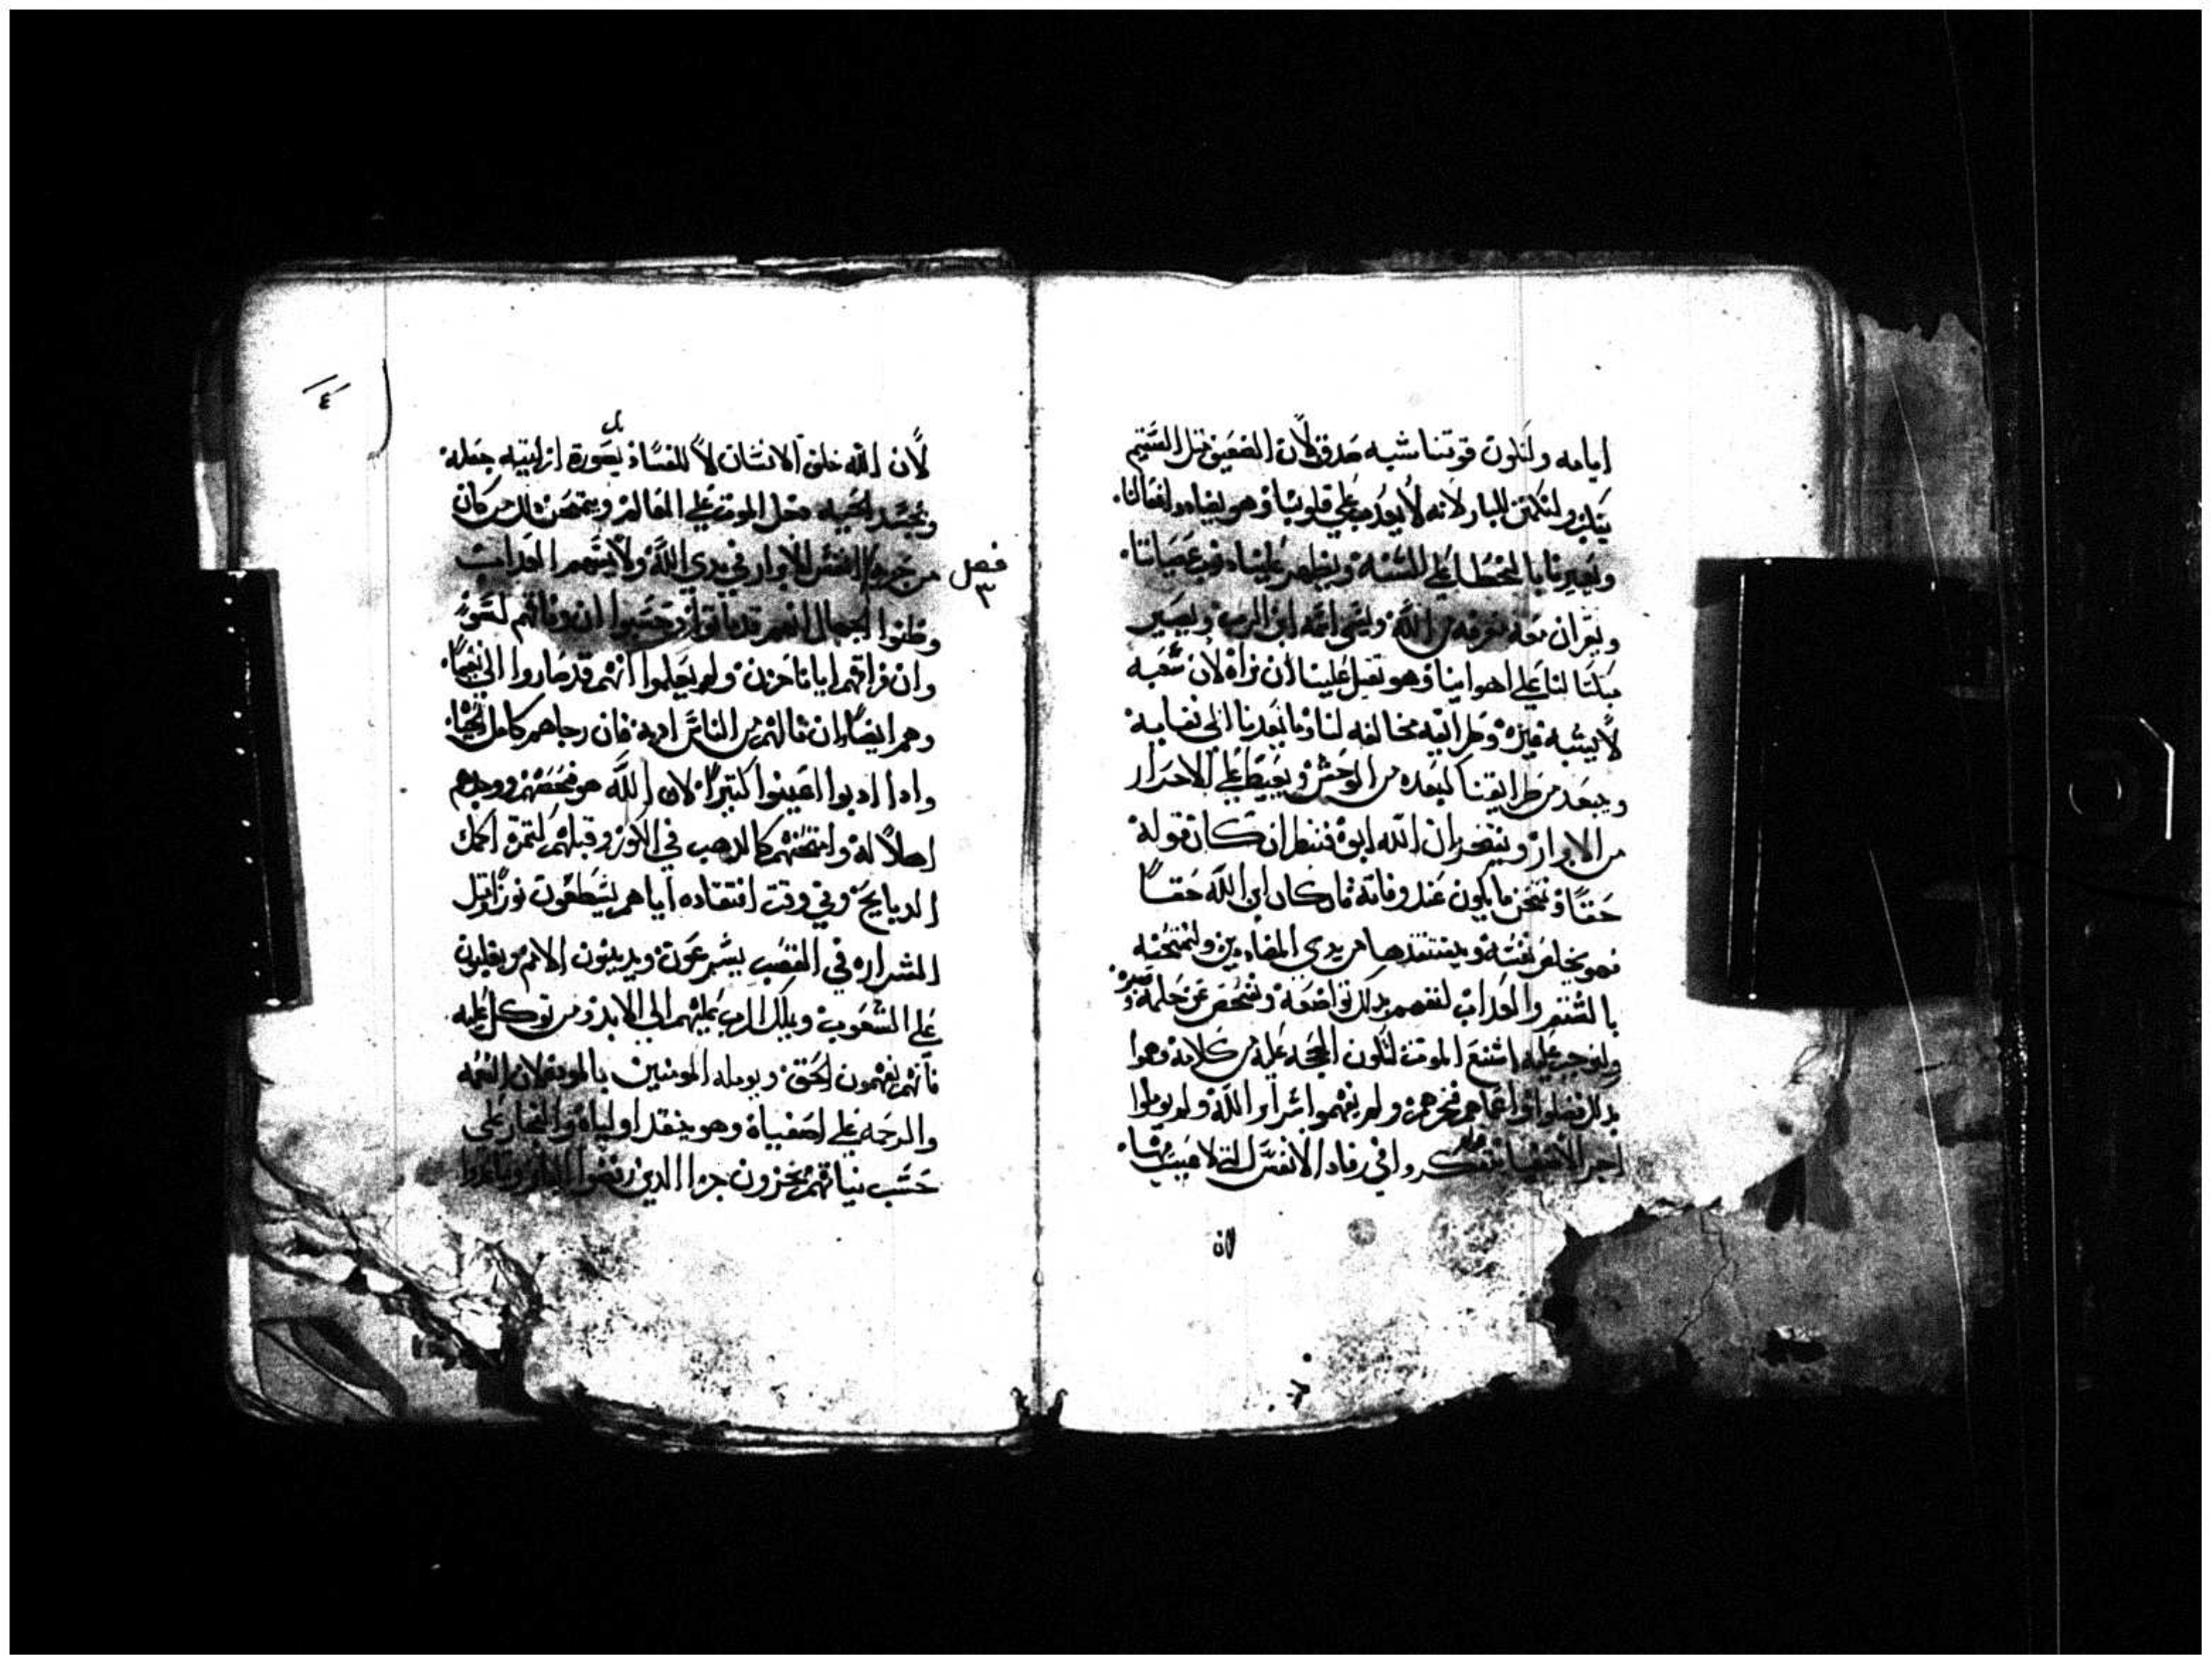 ايامه ولتكون قوتنا شبه صدق لان الضعيف مثل السقيم
ولنكمن للبار لانه لا يعذب علي قلوبنا وهو يضاد افعالنا.
ويعيرنا بالخطا علي السنه ويظهر علينا ذنوب عصياننا.
ويقر ان معه معرفه من الله ويسمي انه ابن الرب ويصير
مبكتا لنا علي اهواينا وهو تقيل علينا ان نراه لان شعبه
لا يشبه غيره وطرايقه مخالفه لنا وما يعدنا الي نصابه
ويبعد من طرايقنا كبعده من الوحش ويغبط علي الاحرار
من الابرار ويفتخر ان الله ابوه فننظر ان كان قوله
حقا ونمتحن ما يكون عند وفاته فان كان ابن الله حقا
فهو يخلص نفسه وينقذها من يدي المضادين ولنمتحنه
بالشتم والعداب لنفهم بذلك تواضعه ونفحص عن حلمه وصبره.
ولنوجب عليه اشنع الموت لتكون الحجه عليه من كلامه وهوا
بذلك فضلوا واعماهم فخرهم ولم يفهموا اسرار الله ولم يوملوا
اجر الاتقيا ولم تفكروا في رقاد الانفس التي لا عيب بها.
لان
لان الله خلق الانسان لا للفساد بل بصورة ازليتيه جعله.
وبحسد الحيه دخل الموت علي العالم ويمتحن بذلك من كان
فصل ٣
من حزبه انفس الابرار في يدي الله ولا يمسهم العداب
وظنوا الجهال انهم قد ماتوا وحسبوا ان وفاتهم لسو
وان فراقهم ايانا حزن ولم يعلموا انهم قد صاروا الي نعيما.
وهم ايضا وان نالهم من الناس اديه فان رجاهم كامل بحياه.
وادا ادبوا اعينوا كتيرا لان الله هو فحصهم ووجدهم
اهلا له وامتحنهم كالدهب في الكور وقبلهم كتمرة اكمل
الدبايح وفي وقت افتقاده اياهم يسطعون نورا مثل
الشراره في القصب يسرعون ويدينون الامم ويغلبون
علي الشعوب ويملك الرب عليهم الي الابد ومن توكل عليه.
فانهم يفهمون الحق ويومله المومنين بالموده لان النعمه
والرحمه علي اصفياه وهو ينقد اولياه والفجار علي
حسب نياتهم يخزون جدا الدين رفضوا البار وتباعدوا
٤